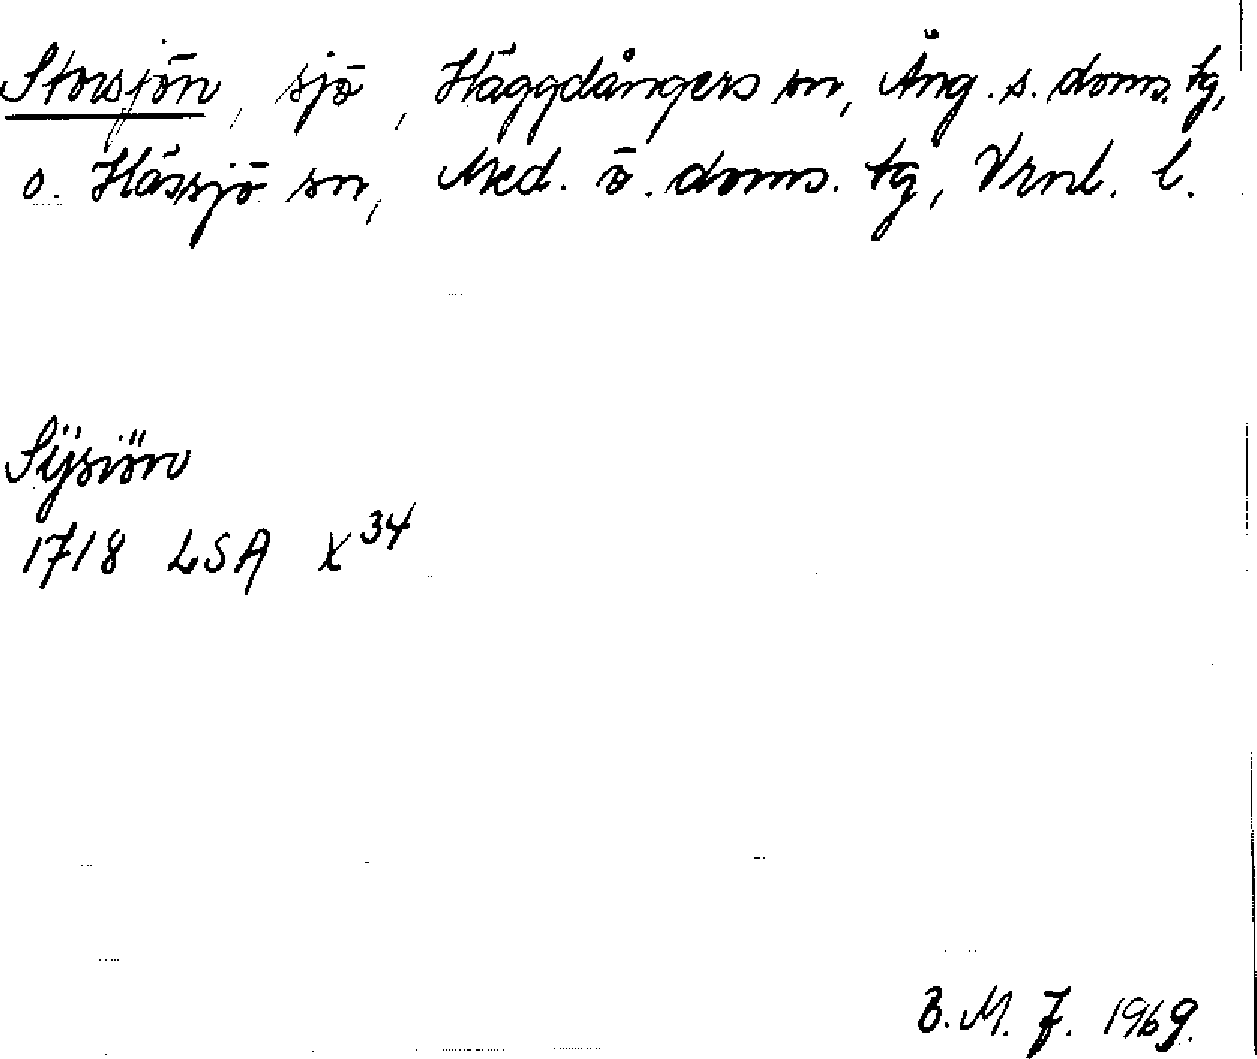 Storsjön, sjö, Häggdångers sn, Ång. s. doms. tg,
o. Hässjö sn, Med. ö. doms. tg, Vrnl. l.
Sÿsiön
1718 LSA X³⁴
B. M. J. 1969.